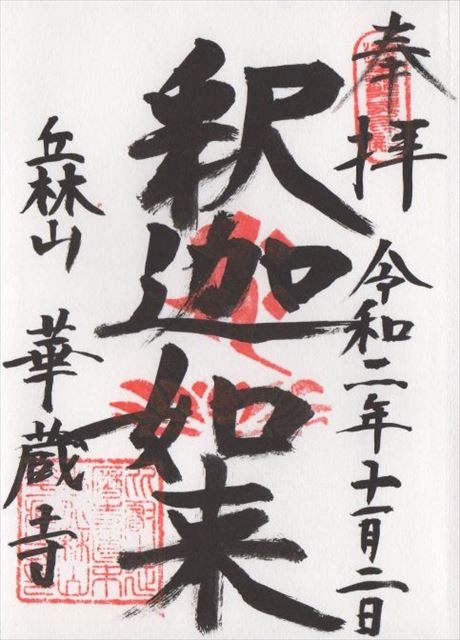 奉拝
令和二年十一月二日
釈迦如来
丘林山
華蔵寺